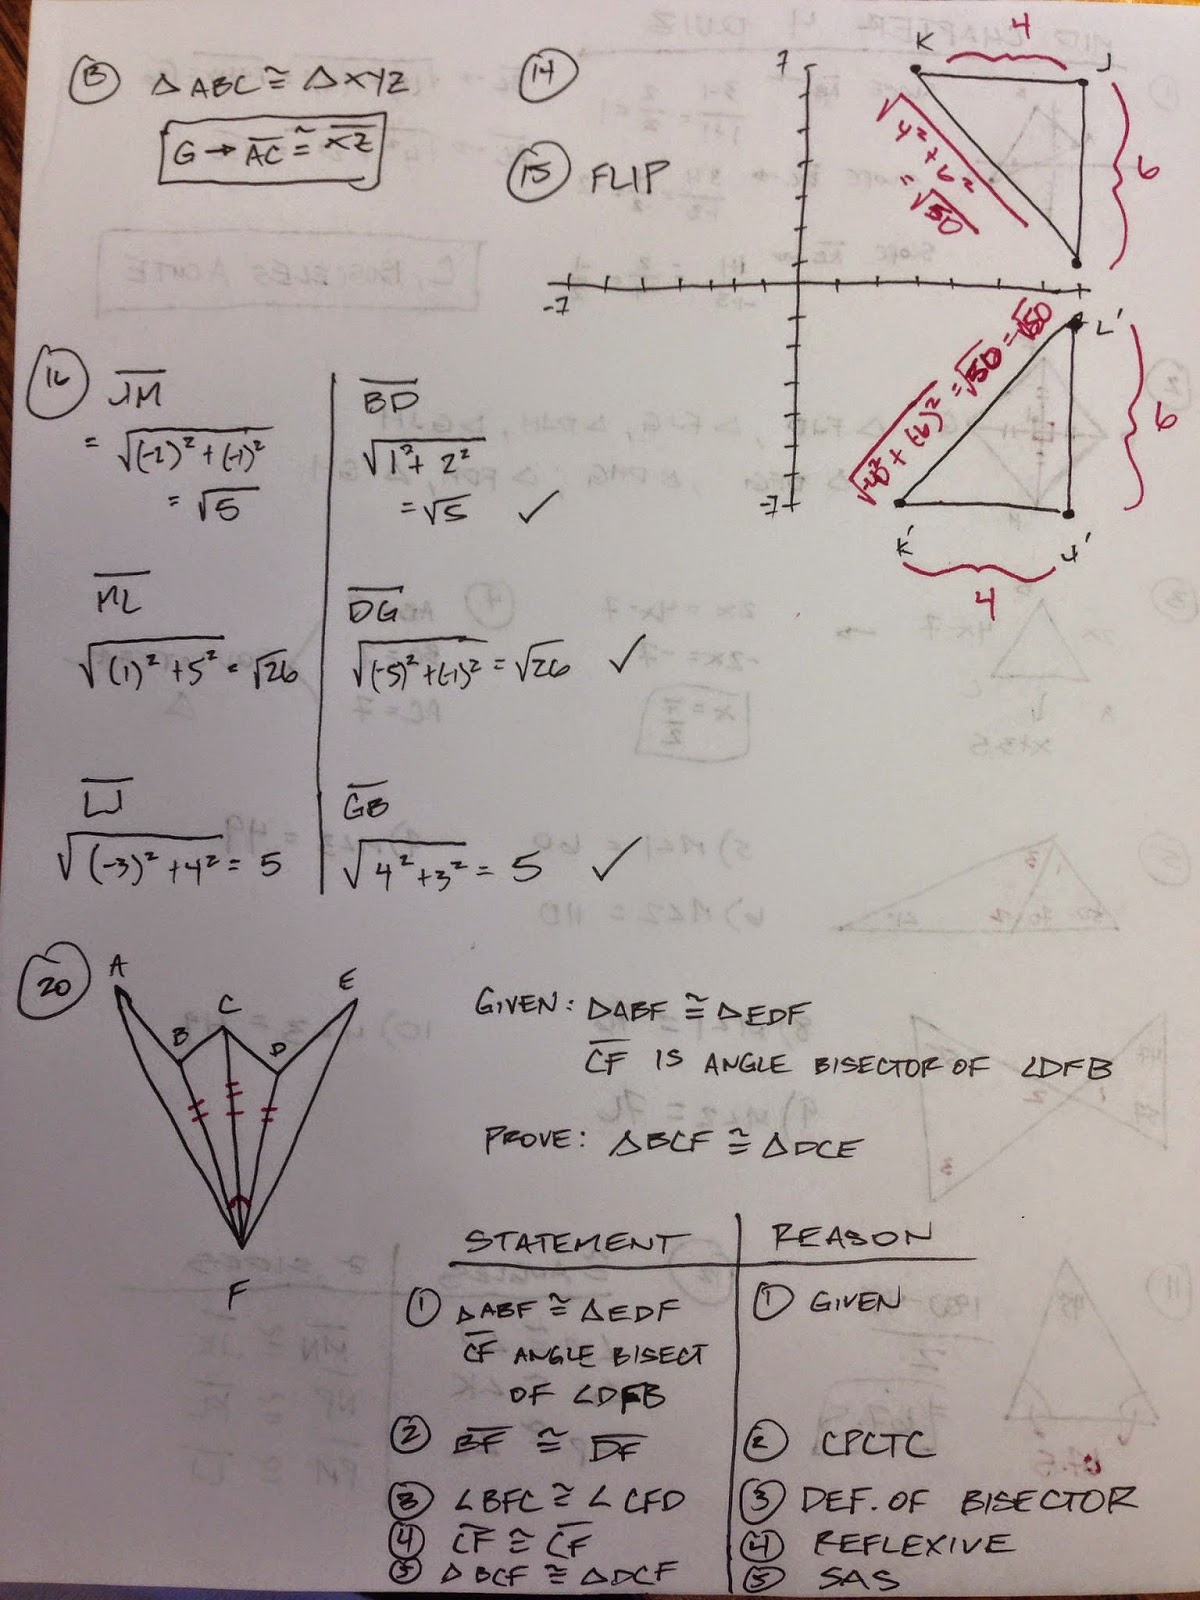 13 △ABC ≅ △XYZ
G → AC ≅ XZ
14
15 FLIP
7
-7
-7
K
J
4
6
√4²+6²
= √50
L'
K'
J'
6
4
√4²+(-6)² = √50 = √50
16
JM
= √(-2)²+(-1)²
= √5
BD
√1²+2²
= √5 ✓
ML
√(1)²+5² = √26
DG
√(-5)²+(-1)² = √26 ✓
LJ
√(-3)²+4² = 5
GB
√4²+3² = 5 ✓
20
A
B
C
D
E
F
GIVEN: △ABF ≅ △EDF
CF IS ANGLE BISECTOR OF ∠DFB
PROVE: △BCF ≅ △DCE
STATEMENT REASON
1 △ABF ≅ △EDF 1 GIVEN
CF ANGLE BISECT
OF ∠DFB
2 BF ≅ DF 2 CPCTC
3 ∠BFC ≅ ∠CFD 3 DEF. OF BISECTOR
4 CF ≅ CF 4 REFLEXIVE
5 △BCF ≅ △DCF 5 SAS